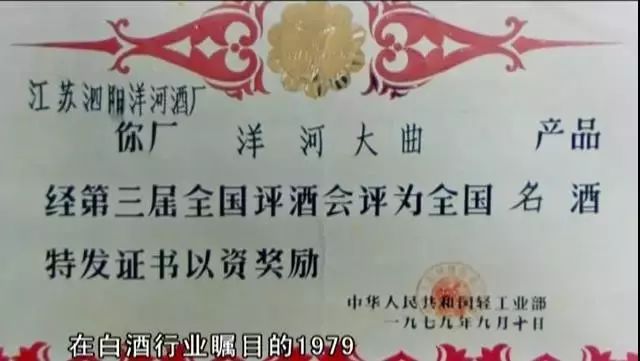 江苏泗阳洋河酒厂
你厂 洋河大曲 产品
经第三届全国评酒会评为全国名酒
特发证书以资奖励
中华人民共和国轻工业部
一九七九年九月十日
在白酒行业瞩目的1979